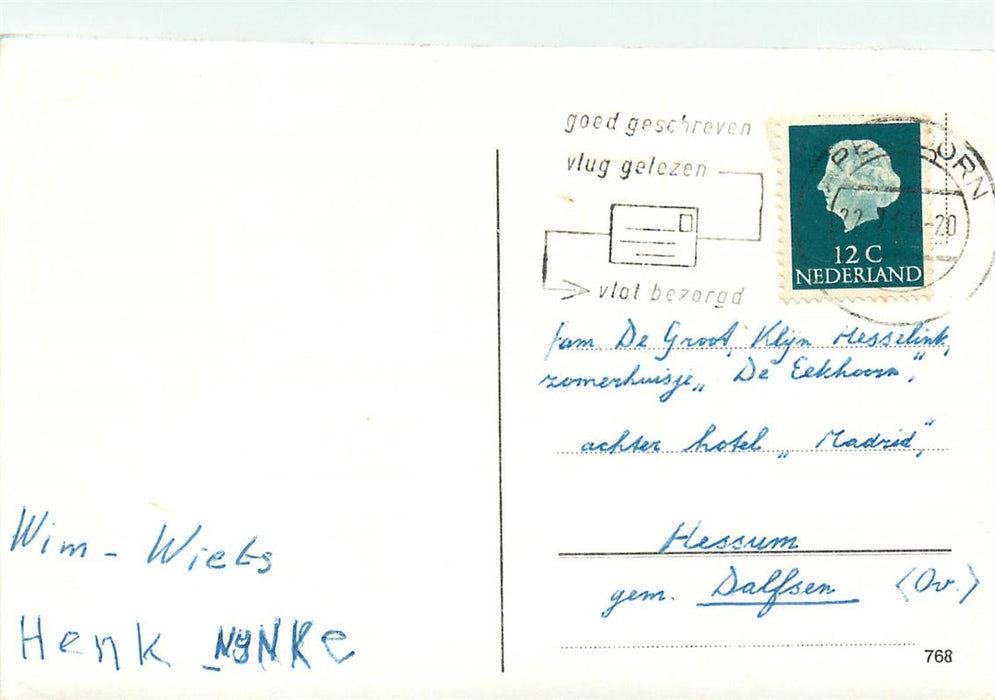 goed geschreven
vlug gelezen
vlot bezorgd
12 C
NEDERLAND
fam. De Groot, Klijn Hesselink,
zomerhuisje „ De Eekhoorn",
achter hotel „ Madrid",
Hessum
gem. Dalfsen (Ov.)
Wim - Wiets
Henk NYNKE
768